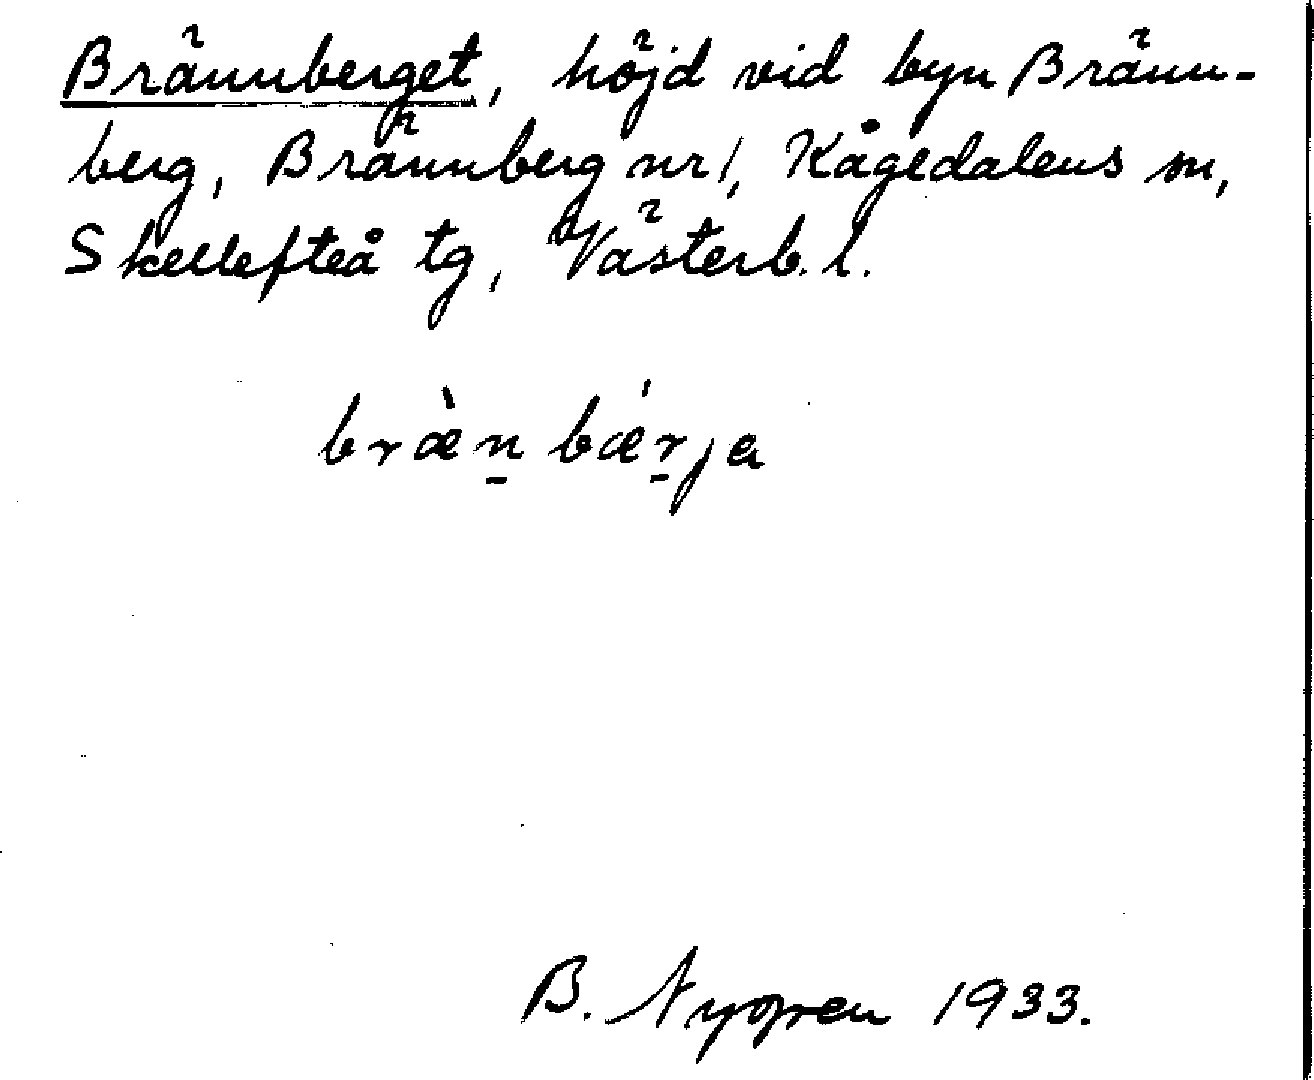 Brännberget, höjd vid byn Bränn-
berg, Brännberg nr 1, Kågedalens sn,
Skellefteå tg, Västerb. l.
bræ̀n̠ bǽr̠ja
B. Nygren 1933.